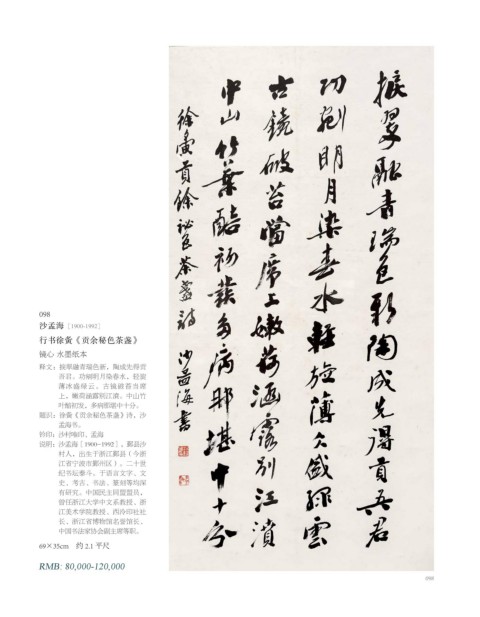 捩翠融青瑞色新陶成先得贡吾君
功剜明月染春水轻旋薄冰盛绿云
古镜破苔当席上嫩荷涵露别江濆
中山竹叶醅初发多病那堪中十分
徐夤贡余秘色茶盏诗 沙孟海书
098
沙孟海 [1900-1992]
行书徐夤《贡余秘色茶盏》
镜心 水墨纸本
释文：捩翠融青瑞色新，陶成先得贡
吾君。功剜明月染春水，轻旋
薄冰盛绿云。古镜破苔当席
上，嫩荷涵露别江濆。中山竹
叶醅初发，多病那堪中十分。
题识：徐夤《贡余秘色茶盏》诗，沙
孟海书。
钤印：沙村梅印、孟海
说明：沙孟海〔1900~1992〕，鄞县沙
村人，出生于浙江鄞县（今浙
江省宁波市鄞州区）。二十世
纪书坛泰斗，于语言文字、文
史、考古、书法、篆刻等均深
有研究。中国民主同盟盟员，
曾任浙江大学中文系教授、浙
江美术学院教授、西泠印社社
长、浙江省博物馆名誉馆长、
中国书法家协会副主席等职。
69×35cm 约 2.1 平尺
RMB: 80,000-120,000
098